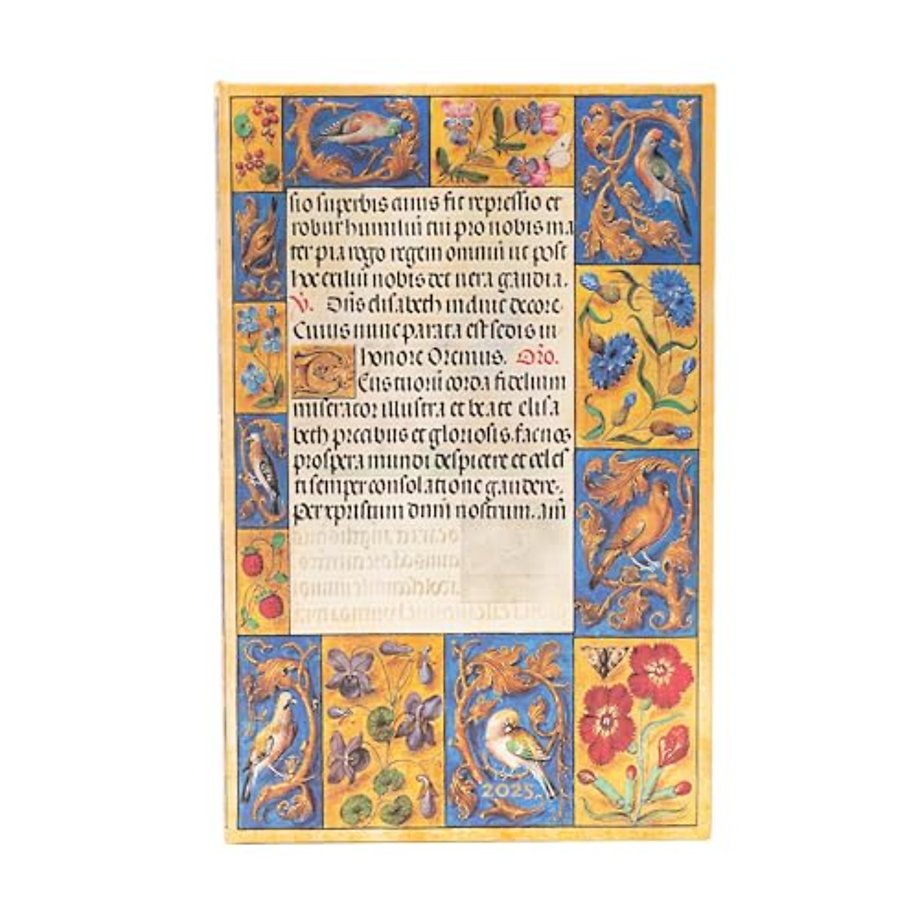 sio superbis cuius fit repressio et
robur humiliū tui pro nobis ma
ter pia rogo regem omniū ut post
hoc exiliū nobis det vera gaudia.
V. Dn̄s elisabeth induit decore.
Cuius nunc parata est sedis in
honore Oremus. Oro.
Deus tuorū corda fidelium
miserator illustra et beate elisa
beth precibus et gloriosis. fac nos
prospera mundi despicere et celes
ti semper consolatione gaudere.
Per xpristum dnm̄ nostrum. Am̄
2025